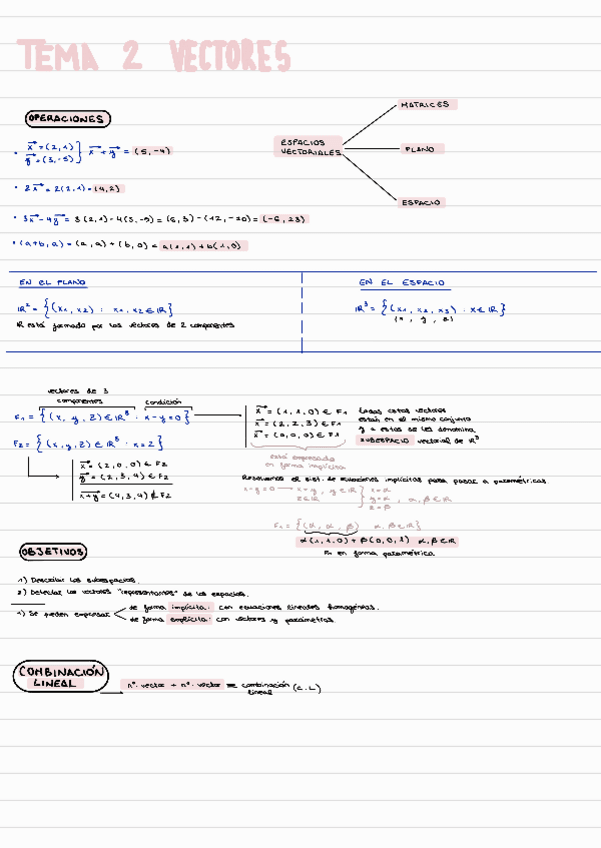 TEMA 2 VECTORES
OPERACIONES
x = (2, 1)
y = (3, -5)
x + y = (5, -4)
2x = 2(2,1) = (4,2)
3x - 4y = 3(2,1) - 4(3,-5) = (6,3) - (12,-20) = (-6,23)
(a+b, a) = (a, a) + (b, 0) = a(1,1) + b(1,0)
ESPACIOS
VECTORIALES
MATRICES
PLANO
ESPACIO
EN EL PLANO
IR² = {(x1, x2) : x1, x2 ∈ IR}
IR está formado por los vectores de 2 componentes
EN EL ESPACIO
IR³ = {(x1, x2, x3) : x ∈ IR}
vectores de 3
componentes
condición
F1 = {(x, y, z) ∈ IR³ : x - y = 0}
F2 = {(x, y, z) ∈ IR³ : x = 2}
x = (2, 0, 0) ∈ F2
y = (2, 3, 4) ∈ F2
x + y = (4, 3, 4) ∉ F2
x = (1, 1, 0) ∈ F1
x = (2, 2, 3) ∈ F1
x = (0, 0, 0) ∈ F1
están en el mismo conjunto
y a estos se les denomina
SUBESPACIO vectorial de IR³
está expresado
en forma implícita
Resolvemos el sist. de ecuaciones implícitas para pasar a paramétricas.
F1 = {(α, α, β) α, β ∈ IR}
α(1, 1, 0) + β(0, 0, 1) α, β ∈ IR
F1 en forma paramétrica.
OBJETIVOS
1) Describir los subespacios.
2) Detectar los vectores "representantes" de los espacios.
1) Se pueden expresar
de forma implícita: con ecuaciones lineales homogéneas.
de forma explícita: con vectores y parámetros
COMBINACIÓN
LINEAL
nº · vector + nº · vector = combinación
lineal (C.L)